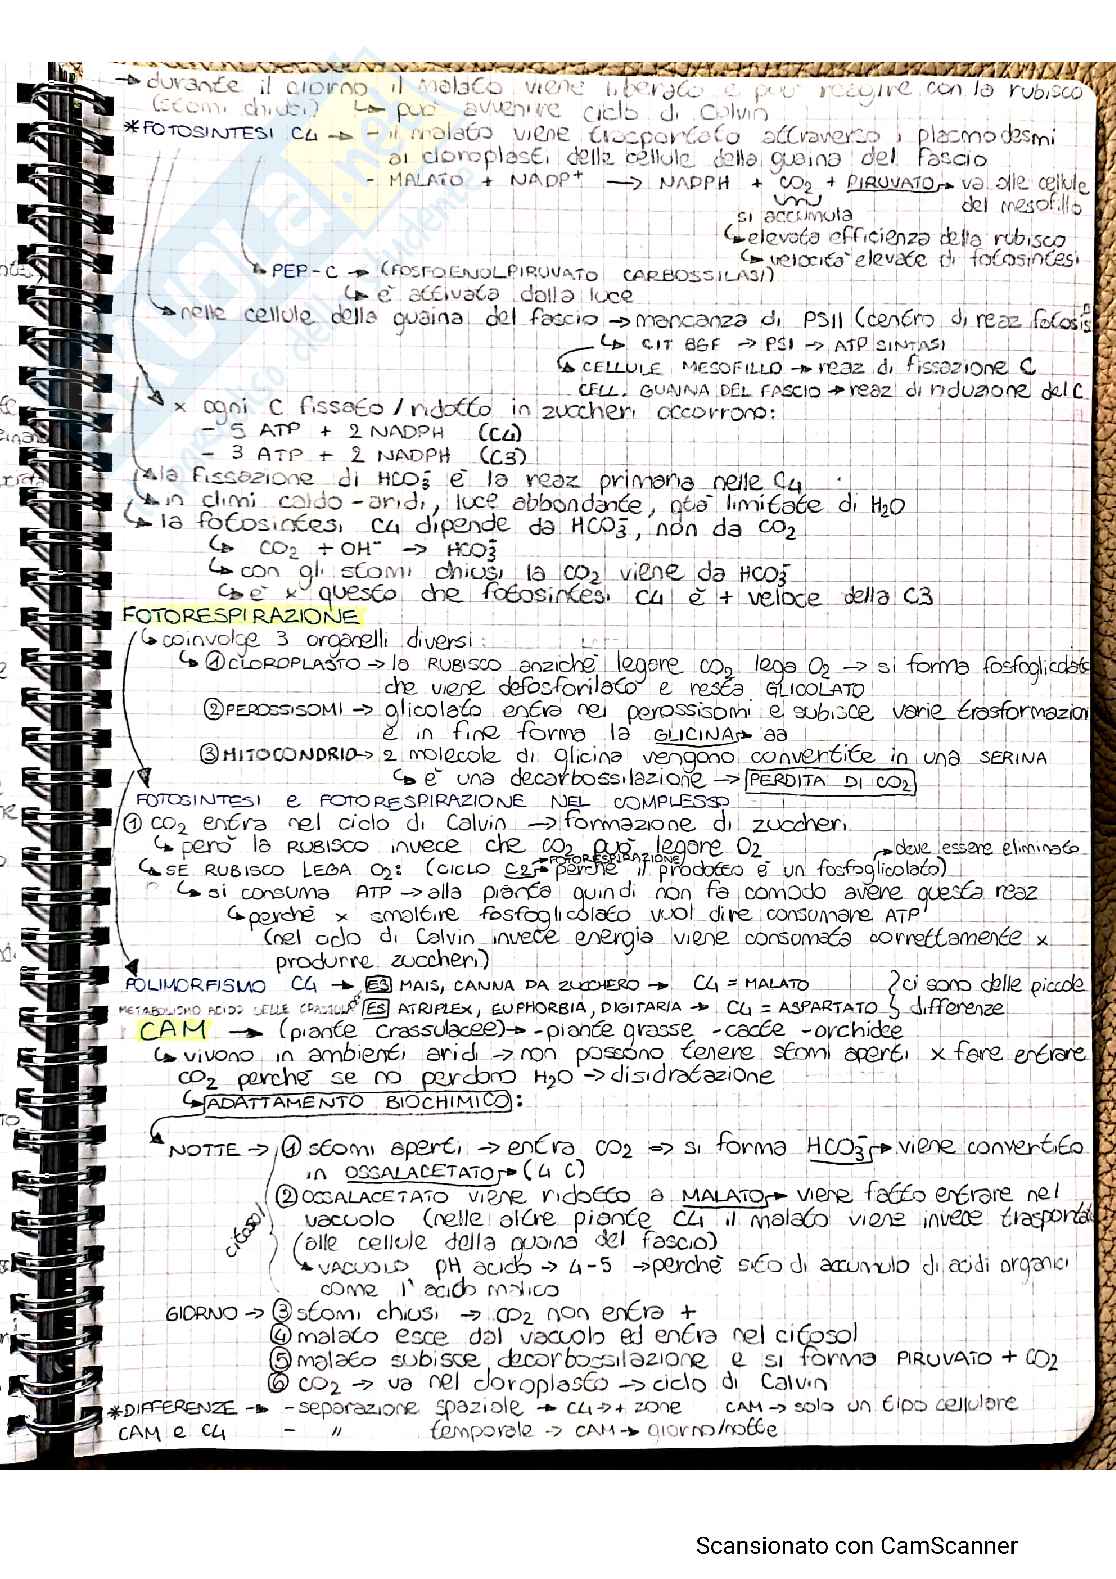 → durante il giorno il malato viene liberato e può reagire con la rubisco
(stomi chiusi) ↳ può avvenire ciclo di Calvin
*FOTOSINTESI C4 → - il malato viene trasportato attraverso i plasmodesmi
ai cloroplasti delle cellule della guaina del fascio
- MALATO + NADP⁺ → NADPH + CO₂ + PIRUVATO → va alle cellule
del mesofillo
si accumula
↳ elevata efficienza della rubisco
↳ velocità elevate di fotosintesi
↳ PEP-C → (FOSFOENOLPIRUVATO CARBOSSILASI)
↳ è attivata dalla luce
→ nelle cellule della guaina del fascio → mancanza di PSII (centro di reaz fotosis
↳ CIT B6F → PSI → ATP SINTASI
↳ CELLULE MESOFILLO → reaz di fissazione C
CELL. GUAINA DEL FASCIO → reaz di riduzione del C
↘ x ogni C fissato/ridotto in zuccheri occorrono:
- 5 ATP + 2 NADPH (C4)
- 3 ATP + 2 NADPH (C3)
↳ la fissazione di HCO₃⁻ è la reaz primaria nelle C4
↳ in climi caldo-aridi, luce abbondante, qtà limitate di H₂O
↳ la fotosintesi C4 dipende da HCO₃⁻, non da CO₂
↳ CO₂ + OH⁻ → HCO₃⁻
↳ con gli stomi chiusi la CO₂ viene da HCO₃⁻
↳ è x questo che fotosintesi C4 è + veloce della C3
FOTORESPIRAZIONE
↳ coinvolge 3 organelli diversi:
↳ ① CLOROPLASTO → la RUBISCO anziché legare CO₂ lega O₂ → si forma fosfoglicolato
che viene defosforilato e resta GLICOLATO
② PEROSSISOMI → glicolato entra nei perossisomi e subisce varie trasformazion
e in fine forma la GLICINA → aa
③ MITOCONDRIO → 2 molecole di glicina vengono convertite in una SERINA
↳ è una decarbossilazione → PERDITA DI CO₂
FOTOSINTESI e FOTORESPIRAZIONE NEL COMPLESSO
① CO₂ entra nel ciclo di Calvin → formazione di zuccheri
↳ però la RUBISCO invece che CO₂ può legare O₂ → deve essere eliminato
↳ SE RUBISCO LEGA O₂: (CICLO C2 → FOTORESPIRAZIONE) perché il prodotto è un fosfoglicolato)
↳ si consuma ATP → alla pianta quindi non fa comodo avere questa reaz
↳ perché x smaltire fosfoglicolato vuol dire consumare ATP
(nel ciclo di Calvin invece energia viene consumata correttamente x
produrre zuccheri)
POLIMORFISMO C4 → ES MAIS, CANNA DA ZUCCHERO → C4 = MALATO } ci sono delle piccole
METABOLISMO ACIDO DELLE CRASSULACEE ES ATRIPLEX, EUPHORBIA, DIGITARIA → C4 = ASPARTATO } differenze
CAM → (piante crassulacee) → - piante grasse - cacte - orchidee
↳ vivono in ambienti aridi → non possono tenere stomi aperti x fare entrare
CO₂ perché se no perdono H₂O → disidratazione
↳ ADATTAMENTO BIOCHIMICO:
NOTTE → ① stomi aperti → entra CO₂ → si forma HCO₃⁻ → viene convertito
in OSSALACETATO → (4 C)
② OSSALACETATO viene ridotto a MALATO → viene fatto entrare nel
vacuolo (nelle altre piante C4 il malato viene invece trasportato
citosol
(alle cellule della guaina del fascio)
↳ VACUOLO pH acido → 4-5 → perché sito di accumulo di acidi organici
come l'acido malico
GIORNO → ③ stomi chiusi → CO₂ non entra +
④ malato esce dal vacuolo ed entra nel citosol
⑤ malato subisce decarbossilazione e si forma PIRUVATO + CO₂
⑥ CO₂ → va nel cloroplasto → ciclo di Calvin
*DIFFERENZE → - separazione spaziale → C4 → + zone CAM → solo un tipo cellulare
CAM e C4 - " temporale → CAM → giorno/notte
Scansionato con CamScanner